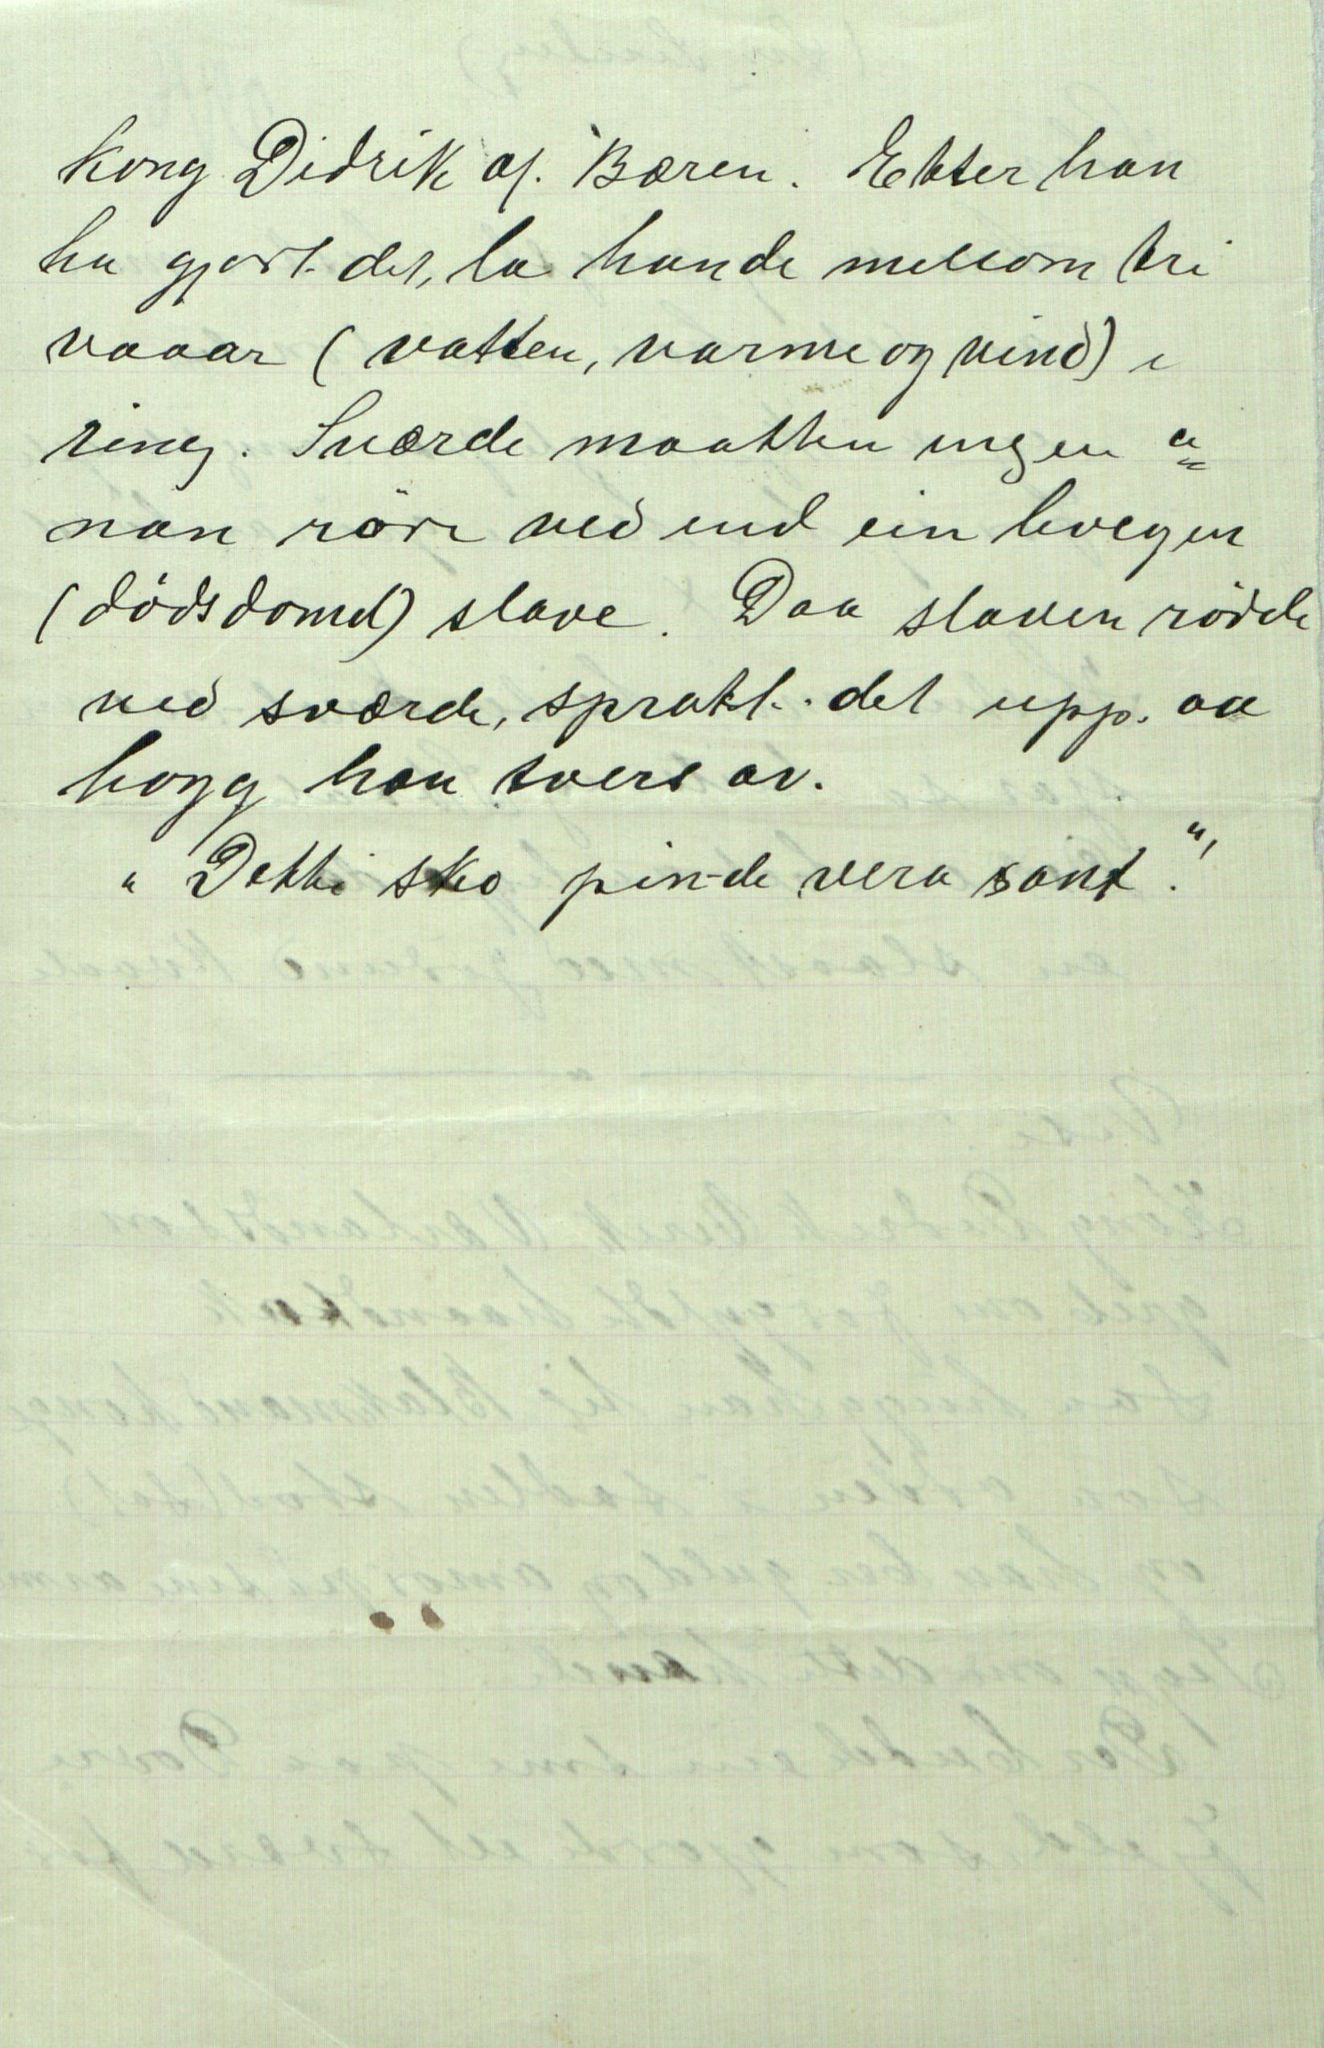 Kong Didrik af. Bæren. Etter han
ha gjort det, la hande mellom tri
vaaar (vatten, varme og vind) i
ring. Sværde maatten ingen a=
nan röre ved end ein
(dödsdomd) slave. Daa slaven rörde
ved sværde, sprakk det upp. aa
hogg han tvers av.
"Detti sko pin-de vera sant."